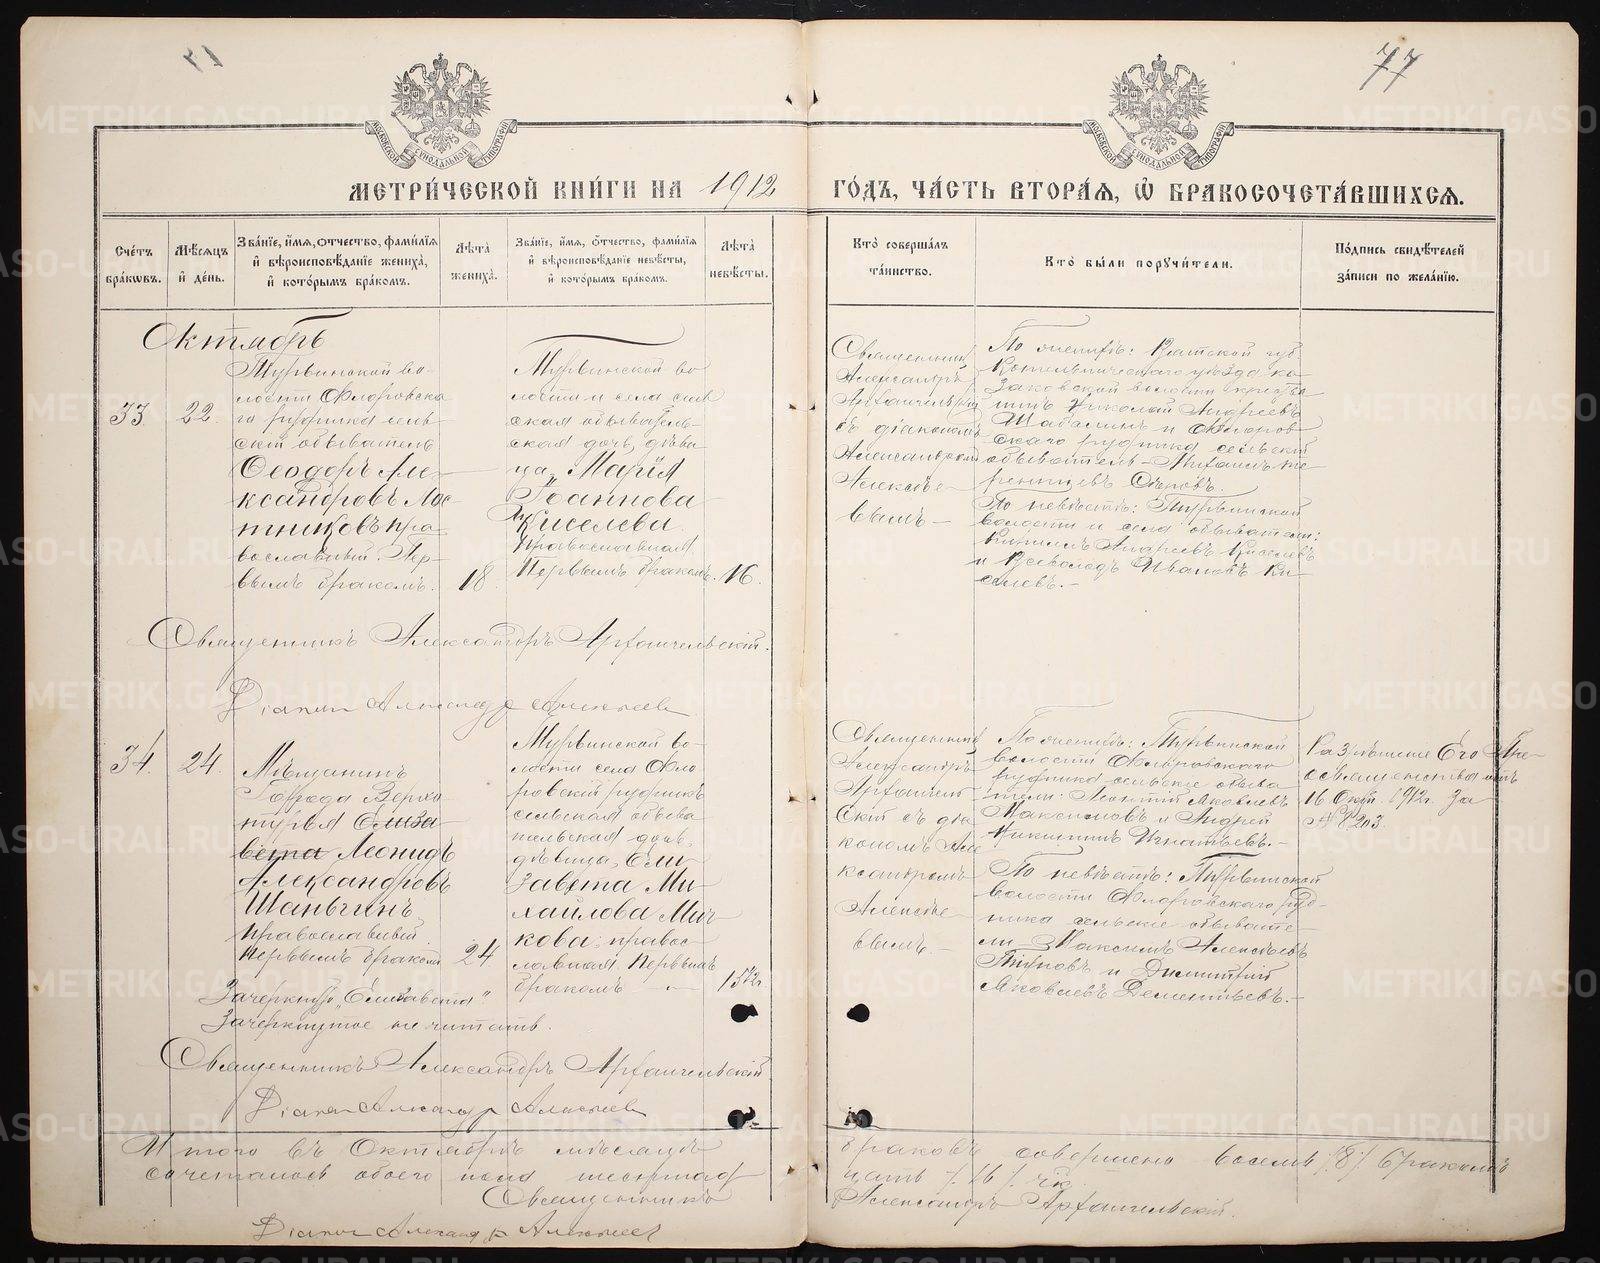 77
МОСКОВСКОЙ СѴНОДАЛЬНОЙ ТИПОГРАФІИ
МОСКОВСКОЙ СѴНОДАЛЬНОЙ ТИПОГРАФІИ
МЕТРИ́ЧЕСКОЙ КНИ́ГИ НА 1912 ГО́ДЪ, ЧА́СТЬ ВТОРА́Я, Ѡ БРАКОСОЧЕТА́ВШИХСЯ.
Сче́тъ бра́кѡвъ.
Мѣ́сяцъ и҆ де́нь.
Зва́нїе, и҆́мя, ѻ҆́тчество, фами́лїя и҆ вѣроисповѣ́данїе жениха̀, и҆ кото́рымъ бра́комъ.
Лѣта̀ жениха̀.
Зва́нїе, и҆́мя, ѻ҆́тчество, фами́лїя и҆ вѣроисповѣ́данїе невѣ́сты, и҆ кото́рымъ бра́комъ.
Лѣта̀ невѣ́сты.
Кто̀ соверша́лъ та́инство.
Кто̀ бы́ли порꙋчи́тели.
По́дпись свидѣ́телей за́писи по жела́нїю.
Октябрь
33.
22.
Турьинской во-
лости Фроловска-
го рудника сель-
скій обыватель
Ѳеодоръ Але-
ксандровъ
пра-
вославный. Пер-
вымъ бракомъ.
18.
Турьинской во
лости и села сель
ская обыватель-
ская дочь, дѣви
ца, Марія
Іоаннова
Киселева
православная
Первымъ бракомъ.
16.
Священникъ
Александръ
Архангельскій
съ діакономъ
Александромъ
Алексѣе-
вымъ –
По женихѣ: Вятской губ
Котельническаго уѣзда ка-
заковской волости крестья
нинъ Николай Андреевъ
Шабалинъ и Фролов-
скаго рудника сельскій
обыватель – Михаилъ Те-
рентьевъ
По невѣстѣ: Турьинской
волости и села обыватели:
Андреевъ Киселевъ
и Всеволодъ Ивановъ Ки-
селевъ. –
Священникъ Александръ Архангельскій.
Діаконъ Александръ Алексѣевъ
34.
24.
Мѣщанинъ
Города Верхо-
турья Елиза-
вета Леонидъ
Александровъ
Шаньгинъ
православный
Первымъ бракомъ
24
Турьинской во-
лости села Фло
ровскій рудникъ
сельская обыва
тельская дочь,
дѣвица, Ели-
завета Ми-
хайлова Мич-
кова, правос-
лавная. Первымъ
бракомъ –
15½
Священникъ
Александръ
Архангель
скій съ діа
кономъ Але
ксандромъ
Алексѣе-
вымъ –
По женихѣ: Турьинской
волости Фроловскаго
рудника сельскіе обыва
тели: Леонтій Яковлевъ
Максимовъ и Андрей
Никитинъ Игнатьевъ. –
По невѣстѣ: Турьинской
волости Фроловскаго руд-
ника сельскіе обывате-
ли – Максимъ Алексѣевъ
и Димитрій
Яковлевъ Дементьевъ. –
Разрѣшеніе Его Прео-
освященства отъ
16 Окт. 1912 г. за
№ 8203.
Зачеркнуто „Елизавета“
Зачеркнутое не читать.
Священникъ Александръ Архангельскій
Діаконъ Александръ Алексѣевъ
Итого въ Октябрѣ мѣсяцѣ браковъ совершено восемь /8/ бракомъ
сочеталось обоего пола шестнад цать /16/ чк.
Священникъ Александръ Архангельскій.
Діаконъ Александръ Алексѣевъ
METRIKI.GASO-URAL.RU